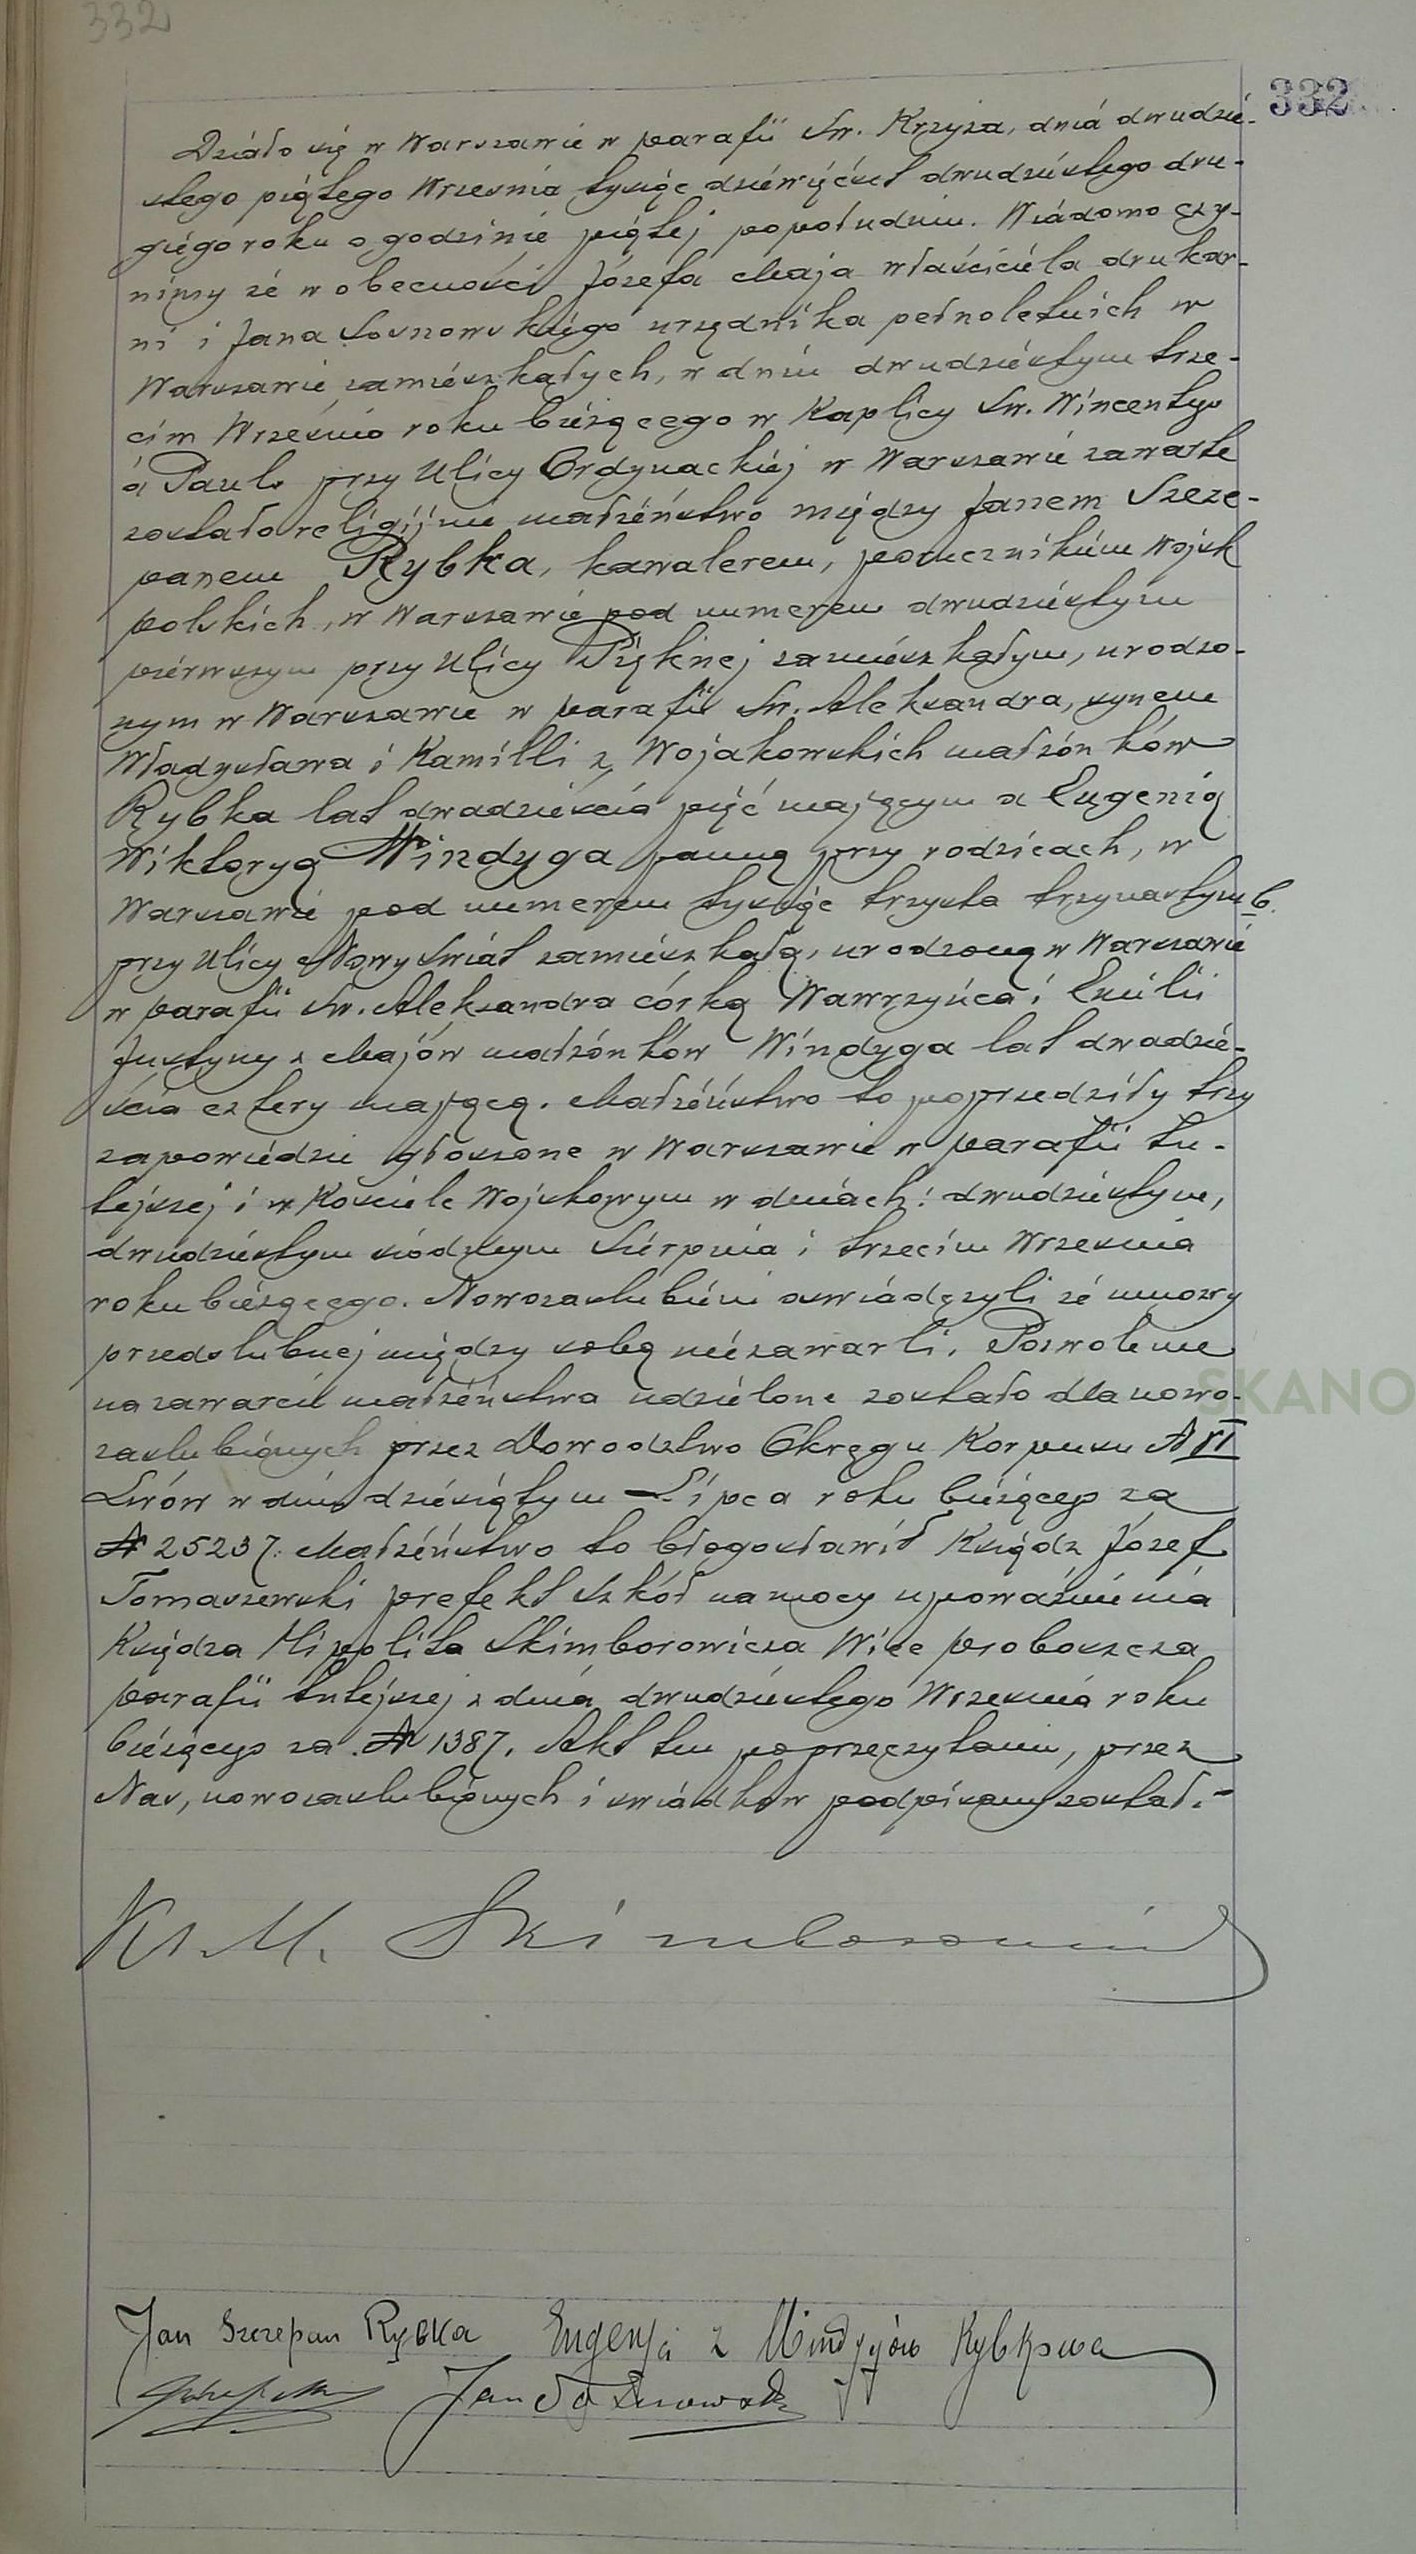 332
332
Działo się w Warszawie w parafii Św. Krzyża, dnia dwudzie-
stego piątego Września tysiąc dziewięćset dwudziestego dru-
giego roku o godzinie piątej popołudniu. Wiadomo czy-
nimy że w obecności Józefa Maja właściciela drukar-
ni i Jana Sosnowskiego urzędnika pełnoletnich w
Warszawie zamieszkałych, w dniu dwudziestym trze-
cim Września roku bieżącego w Kaplicy Św. Wincentego
à Paulo przy Ulicy Ordynackiej w Warszawie zawarte
zostało religijne małżeństwo między Janem Szcze-
panem Rybka, kawalerem, porucznikiem Wojsk
polskich, w Warszawie pod numerem dwudziestym
pierwszym przy Ulicy Pięknej zamieszkałym, urodzo-
nym w Warszawie w parafii Św. Aleksandra, synem
Władysława i Kamilli z Wojakowskich małżonków
Rybka lat dwadzieścia pięć mającym a Eugenią
Wiktoryą Windyga panną przy rodzicach, w
Warszawie pod numerem tysiąc trzysta trzynastym b.
przy Ulicy Nowy Świat zamieszkałą, urodzoną w Warszawie
w parafii Św. Aleksandra córką Wawrzyńca i Emilii
Justyny z Majów małżonków Windyga lat dwadzie-
ścia cztery mającą. Małżeństwo to poprzedziły trzy
zapowiedzie głoszone w Warszawie w parafii tu-
tejszej i w Kościele Wojskowym w dniach: dwudziestym,
dwudziestym siódmym Sierpnia i trzecim Września
roku bieżącego. Nowozaślubieni oświadczyli że umowy
przedślubnej między sobą niezawarli. Pozwolenie
na zawarcie małżeństwa udzielone zostało dla nowo-
zaślubionych przez Dowodztwo Okręgu Korpusu № VI
Lwów w dniu dziesiątym Lipca roku bieżącego za
№ 25237. Małżeństwo to błogosławił Ksiądz Józef
Tomaszewski prefekt szkół na mocy upoważnienia
Księdza Hipolita Skimborowicza Wice proboszcza
parafii tutejszej z dnia dwudziestego Września roku
bieżącego za № 1387. Akt ten po przeczytaniu, przez
Nas, nowozaślubionych i świadków podpisany został.-
Ks. H. Skimborowicz
Jan Szczepan Rybka Eugenja z Windygów Rybkowa
Jan Sosnowski
SKANO